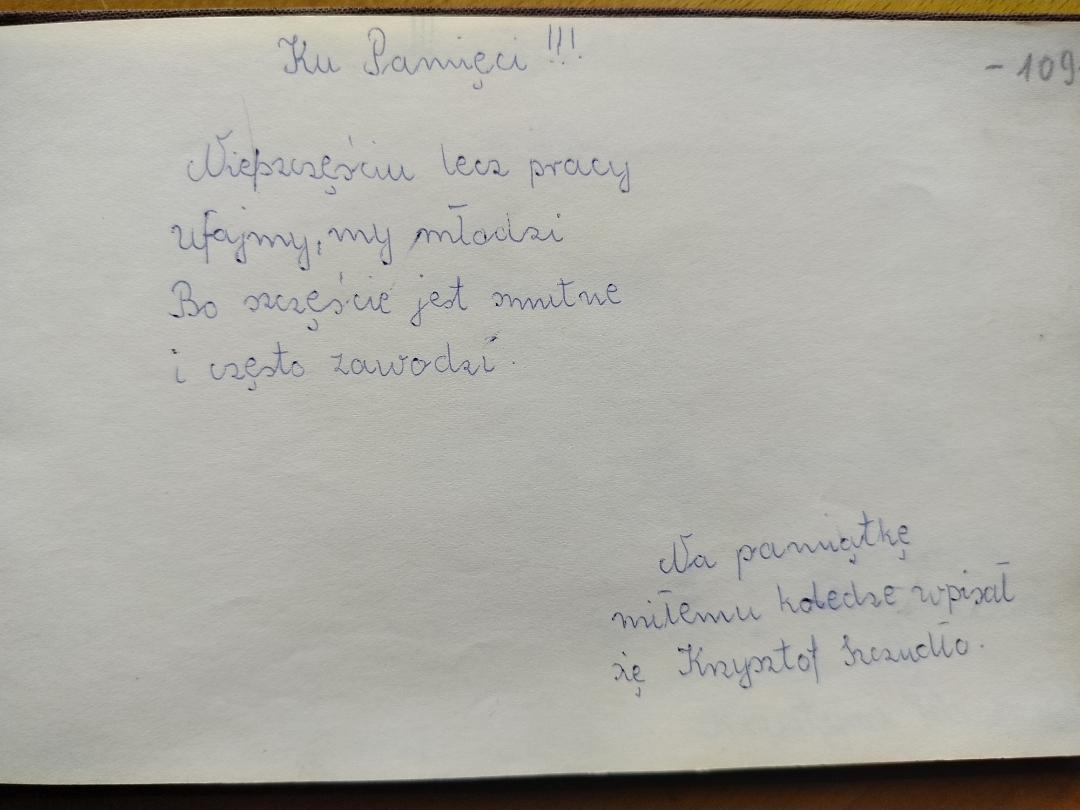 Ku Pamięci !!!
- 109
Nieszczęściu lecz pracy
ufajmy, my młodzi
Bo szczęście jest smutne
i często zawodzi.
Na pamiątkę
miłemu koledze wpisał
się Krzysztof Szczudło.